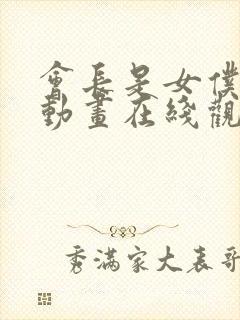 會長是女僕
動畫在綫觀
秀滿家大表哥